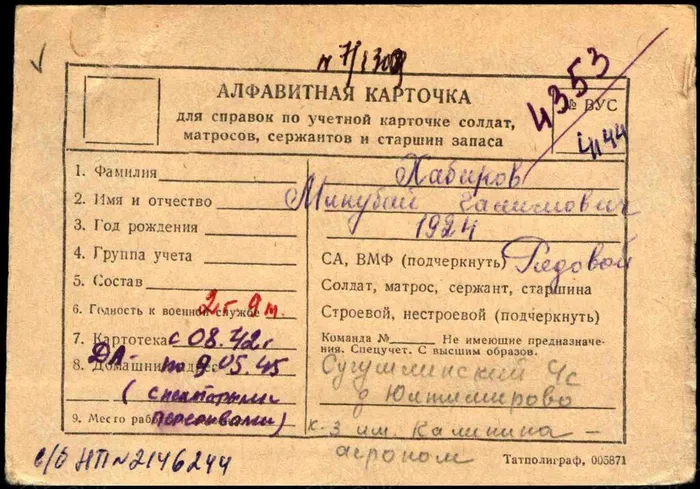 № 7/1309
АЛФАВИТНАЯ КАРТОЧКА
для справок по учетной карточке солдат,
матросов, сержантов и старшин запаса
4353
№ ВУС
4144
1. Фамилия Хабиров
2. Имя и отчество Минубай Галимович
3. Год рождения 1924
4. Группа учета
5. Состав
6. Годность к военной службе 2 г 9 м.
7. Картотека с 08.42 г
8. Домашний адрес ДА- по 9.05.45
(с некторыми
9. Место раб перерывами)
СА, ВМФ (подчеркнуть) Рядовой
Солдат, матрос, сержант, старшина
Строевой, нестроевой (подчеркнуть)
Команда №
Не имеющие предназначения. Спецучет. С высшим образов.
с/с
д Юлтимирово
к-з им. Калинина –
агроном
с/б НП № 2146244
Татполиграф, 005871